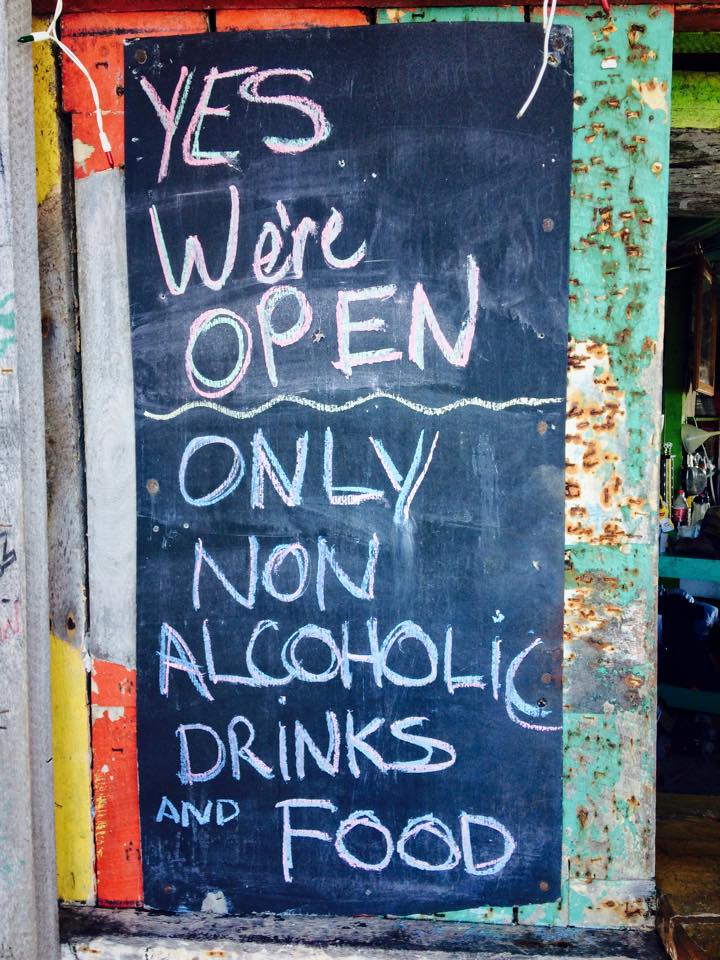 YES
We're
OPEN
ONLY
NON
ALCOHOLiC
DRiNKS
AND FOOD